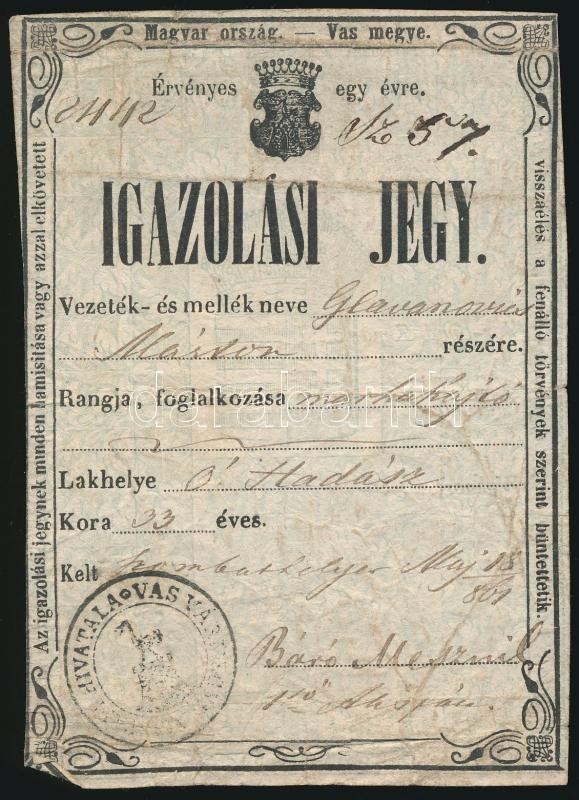 Magyar ország. — Vas megye.
Érvényes egy évre.
2442
Sz 57.
IGAZOLÁSI JEGY.
Vezeték- és mellék neve Glavanovics
Márton részére.
Rangja, foglalkozása marhahajtó
Lakhelye Ó Hadász
Kora 33 éves.
Kelt Szombathelyen Maj 18
861
Báró
Alispán.
HIVATALA VAS VÁR
Az igazolási jegynek minden hamisitása vagy azzal elkövetett
visszaélés a fenálló törvények szerint büntettetik.
darabanth